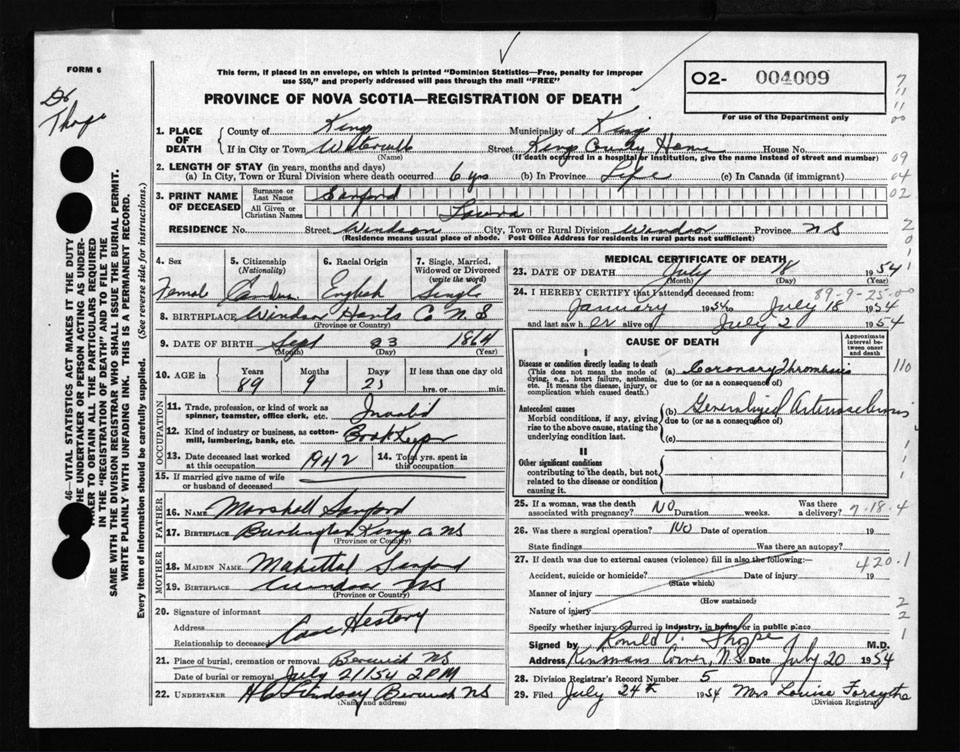 FORM 6
Dr
This form, if placed in an envelope, on which is printed "Dominion Statistics—Free, penalty for improper
use $50," and properly addressed will pass through the mail "FREE"
O2- 004009
For use of the Department only
PROVINCE OF NOVA SCOTIA—REGISTRATION OF DEATH
1. PLACE OF DEATH { County of Kings Municipality of Kings
If in City or Town Waterville Street Kings County Home House No.
(Name) (If death occurred in a hospital or institution, give the name instead of street and number)
2. LENGTH OF STAY (in years, months and days)
(a) In City, Town or Rural Division where death occurred 6 yrs (b) In Province Life (c) In Canada (if immigrant)
3. PRINT NAME OF DECEASED { Surname or Last Name Sanford
All Given or Christian Names Laura
RESIDENCE No. Street Windsor City, Town or Rural Division Windsor Province N S
(Residence means usual place of abode. Post Office Address for residents in rural parts not sufficient)
4. Sex 5. Citizenship (Nationality) 6. Racial Origin 7. Single, Married, Widowed or Divorced (write the word)
Female English Single
8. BIRTHPLACE Windsor Hants Co N.S
(Province or Country)
9. DATE OF BIRTH Sept 23 1864
(Month) (Day) (Year)
10. AGE in { Years Months Days If less than one day old
89 9 hrs. or min.
OCCUPATION
11. Trade, profession, or kind of work as spinner, teamster, office clerk, etc. Invalid
12. Kind of industry or business, as cotton-mill, lumbering, bank, etc. Book Keeper
13. Date deceased last worked at this occupation 1942 14. Total yrs. spent in this occupation
15. If married give name of wife or husband of deceased
FATHER
16. NAME Marshall Sanford
17. BIRTHPLACE Burlington Kings Co NS
(Province or Country)
MOTHER
18. MAIDEN NAME Sanford
19. BIRTHPLACE Windsor NS
(Province or Country)
20. Signature of informant
Address Case History
Relationship to deceased
21. Place of burial, cremation or removal Berwick NS
Date of burial or removal July 21/54 2 PM
22. UNDERTAKER Lindsay Berwick NS
(Name and address)
MEDICAL CERTIFICATE OF DEATH
23. DATE OF DEATH July 18 1954
(Month) (Day)
89-9-25-00
24. I HEREBY CERTIFY that I attended deceased from:
January 1954 to July 18 1954
and last saw her alive on July 2 1954
CAUSE OF DEATH
Approximate interval between onset and death
I
Disease or condition directly leading to death
(This does not mean the mode of dying, e.g., heart failure, asthenia, etc. It means the disease, injury, or complication which caused death.)
(a) Coronary Thrombosis
due to (or as a consequence of)
Antecedent causes
Morbid conditions, if any, giving rise to the above cause, stating the underlying condition last.
(b) Generalized Arteriosclerosis
due to (or as a consequence of)
(c)
II
Other significant conditions
contributing to the death, but not related to the disease or condition causing it.
25. If a woman, was the death associated with pregnancy? NO Duration weeks. Was there a delivery?
26. Was there a surgical operation? NO Date of operation 19
State findings Was there an autopsy?
27. If death was due to external causes (violence) fill in also the following:—
Accident, suicide or homicide? Date of injury 19
(State which)
Manner of injury
(How sustained)
Nature of injury
Specify whether injury occurred in industry, in home or in public place
Signed by Ronald M.D.
Address Kinsmans Corner, N.S. Date July 20 1954
28. Division Registrar's Record Number 5
29. Filed July 24th 1954 Mrs Louise Forsythe
(Division Registrar)
7
11
00
09
04
02
110
7-18-4
420.1
2
2
1
46—VITAL STATISTICS ACT MAKES IT THE DUTY
THE UNDERTAKER OR PERSON ACTING AS UNDER-
TAKER TO OBTAIN ALL THE PARTICULARS REQUIRED
IN THE "REGISTRATION OF DEATH" AND TO FILE THE
SAME WITH THE DIVISION REGISTRAR WHO SHALL ISSUE THE BURIAL PERMIT.
WRITE PLAINLY WITH UNFADING INK. THIS IS A PERMANENT RECORD.
Every item of information should be carefully supplied. (See reverse side for instructions.)